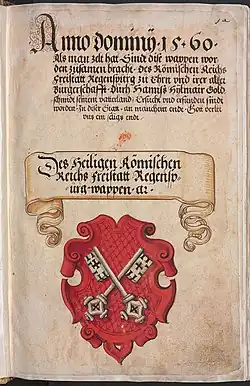 Anno dominy · 15 · 60 ·
Als man zelt hat · Sind dise wappen wor
den zusamen bracht · des Römischen Reichs
Freistatt Regenspurg zu Ehrn und irer aller
Burgerschafft · Durch Hannß Hylmair Gold
schmidt seinem vatterland · Ersucht und erfunden sind
worden · In diser Statt · an manichem ende · Gott verleich
uns ein seligs endt ·
Des Heiligen Römischen
Reichs Freistatt Regensp
urg · wappen ·